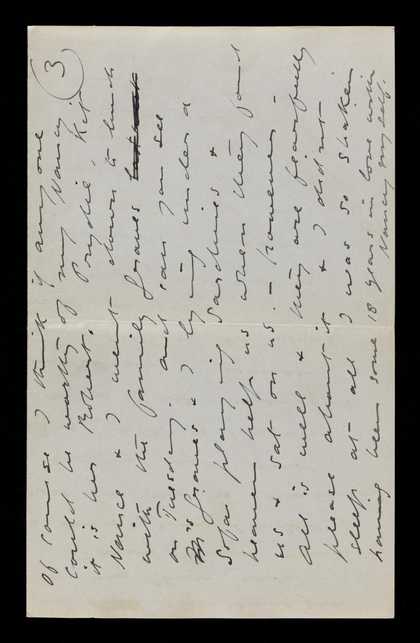 3
Of course I think if anyone
could be worthy of my Nancy
it is her Robert. Prydie, Kit,
Nance & I went down to lunch
with the family Graves
on Tuesday. and can you see
Mrs Graves & I lying under a
sofa playing Sardines &
heaven help us when they found
us & sat on us. - However -
All is well & they are fearfully
please about it & I didnt
sleep at all I was so shaken
having been some 18 years in love with
Nancy myself.